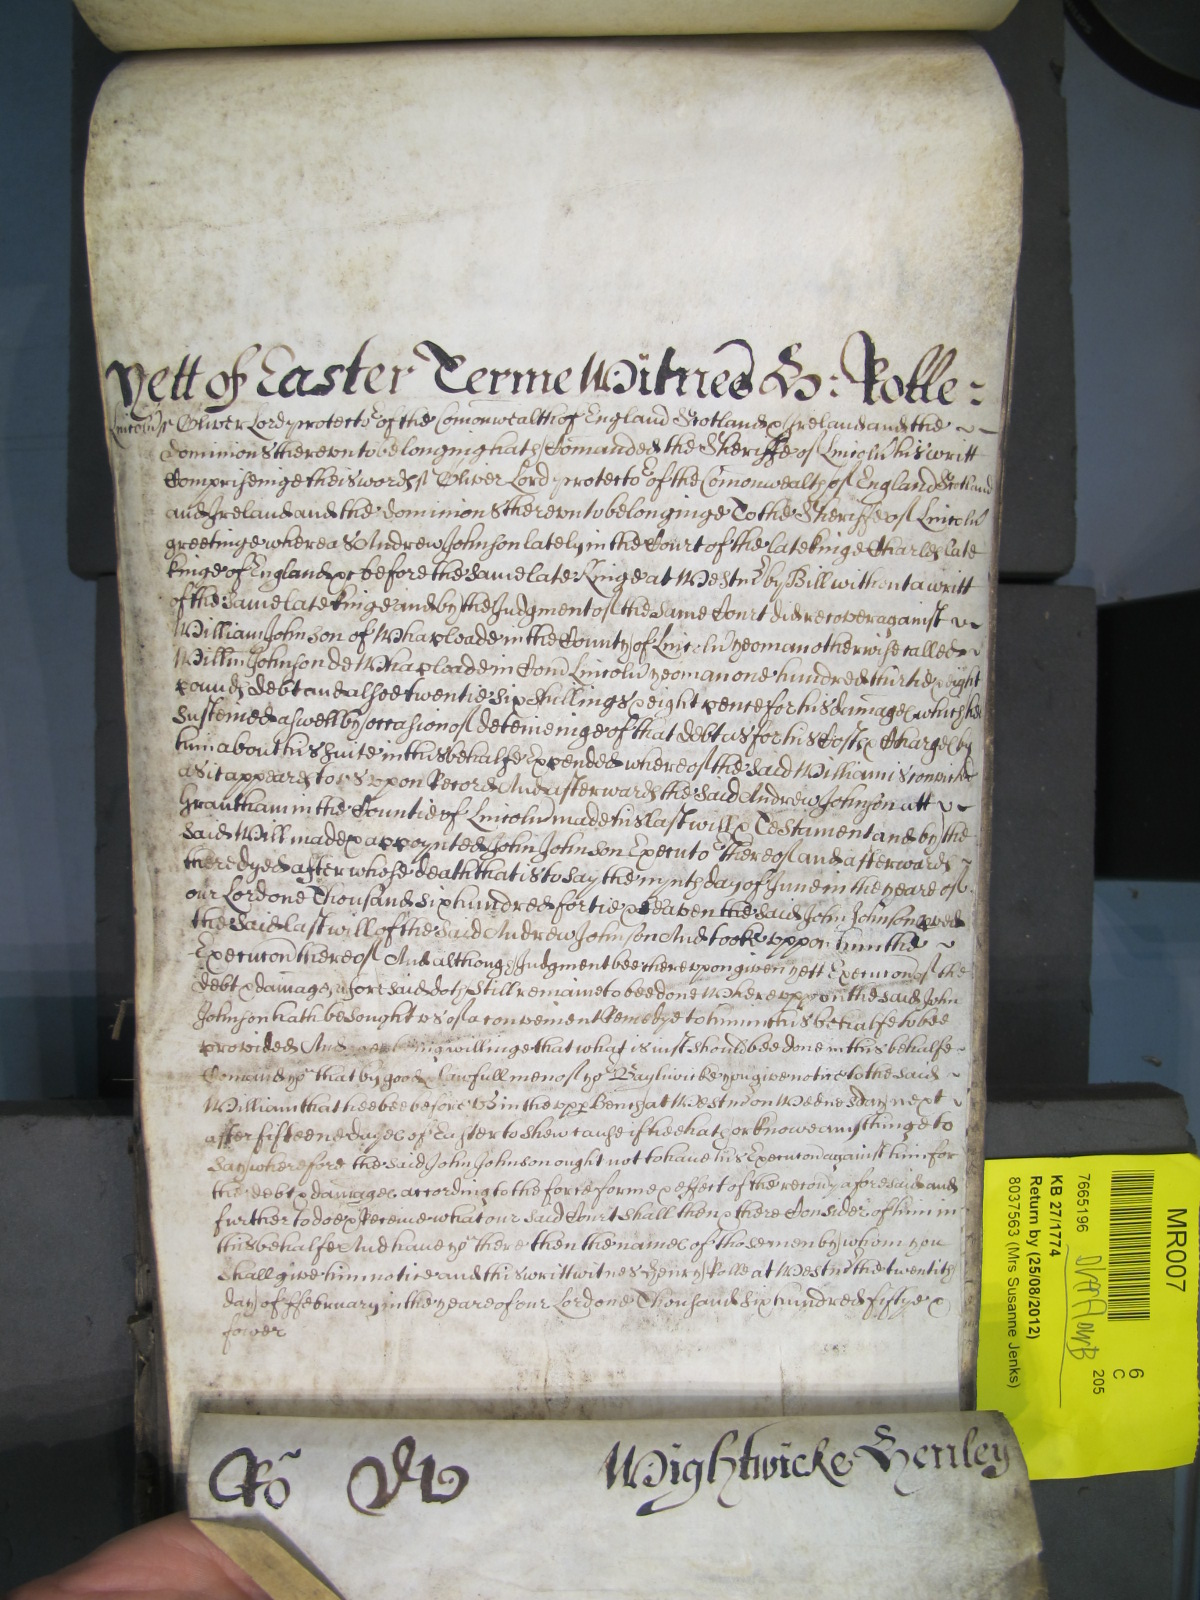 Yett of Easter Terme Witnes H: Rolle:
Lincoln ss Oliver Lord protector of the Comonwealth of England Scotland & Ireland and the
dominions thereunto belonging hath Comanded the Sheriffe of Lincoln his writt
Comprisinge theis words ss Oliver Lord protector of the Comonwealth of England Scotland
and Ireland and the dominions thereunto belonginge To the Sheriffe of Lincoln
greetinge whereas Andrew Johnson lately in the Court of the late kinge Charles late
kinge of England &c before the same late Kinge at Westmr by Bill without a writt
of the same late kinge and by the Judgment of the same Court did recover against
William Johnson of Whaploade in the County of Lincoln yeoman otherwise called
Willm Johnson de Whaploade in Com Lincoln yeoman one hundred thirtie & eight
pounds debt and alsoe twentie six shillings & eight pence for his damages which hee
susteined aswell by occasion of deteineinge of that debt as for his Costs & Charges by
him about his suite in this behalfe Expended whereof the said William is convicted
as it appeares to us uppon Record And afterwards the said Andrew Johnson att
Grantham in the Countie of Lincoln made his last will & Testament and by the
said Will made & appoynted John Johnson Executor thereof and afterwards
there dyed after whose death that is to say the nynth day of June in the yeare of
our Lord one Thousand six hundred fortie & seaven the said John Johnson proved
the said last will of the said Andrew Johnson And tooke uppon him the
Execucon thereof And although Judgment bee thereuppon given yett Execucon of the
debt & damages aforesaid doth still remaine to bee done Whereuppon the said John
Johnson hath besought us of a convenient Remedye to him in this behalfe to bee
provided And wee being willinge that what is iust should bee done in this behalfe
Comand yow that by good & lawfull men of yor Bayliwicke you give notice to the said
William that hee bee before us in the upper Bench at Westmr on Wednesday next
after fifteene dayes of Easter to shew cause if hee hath or knowe any thinge to
say wherefore the said John Johnson ought not to have his Execucon against him for
the debt & damages according to the force forme & effect of the recovy aforesaid and
further to doe & Receive what our said Court shall then & there Consider of him in
this behalfe And have yow there then the names of those men by whom you
shall give him notice and this writt witnes Henry Rolle at Westmr the twentith
day of ffebruary in the yeare of our Lord one Thousand six hundred fiftye &
fower
Ro
Wightwicke Henley
MR007
6
C
205
7665196
KB 27/1774
Return by (25/08/2012)
8037563 (Mrs Susanne Jenks)